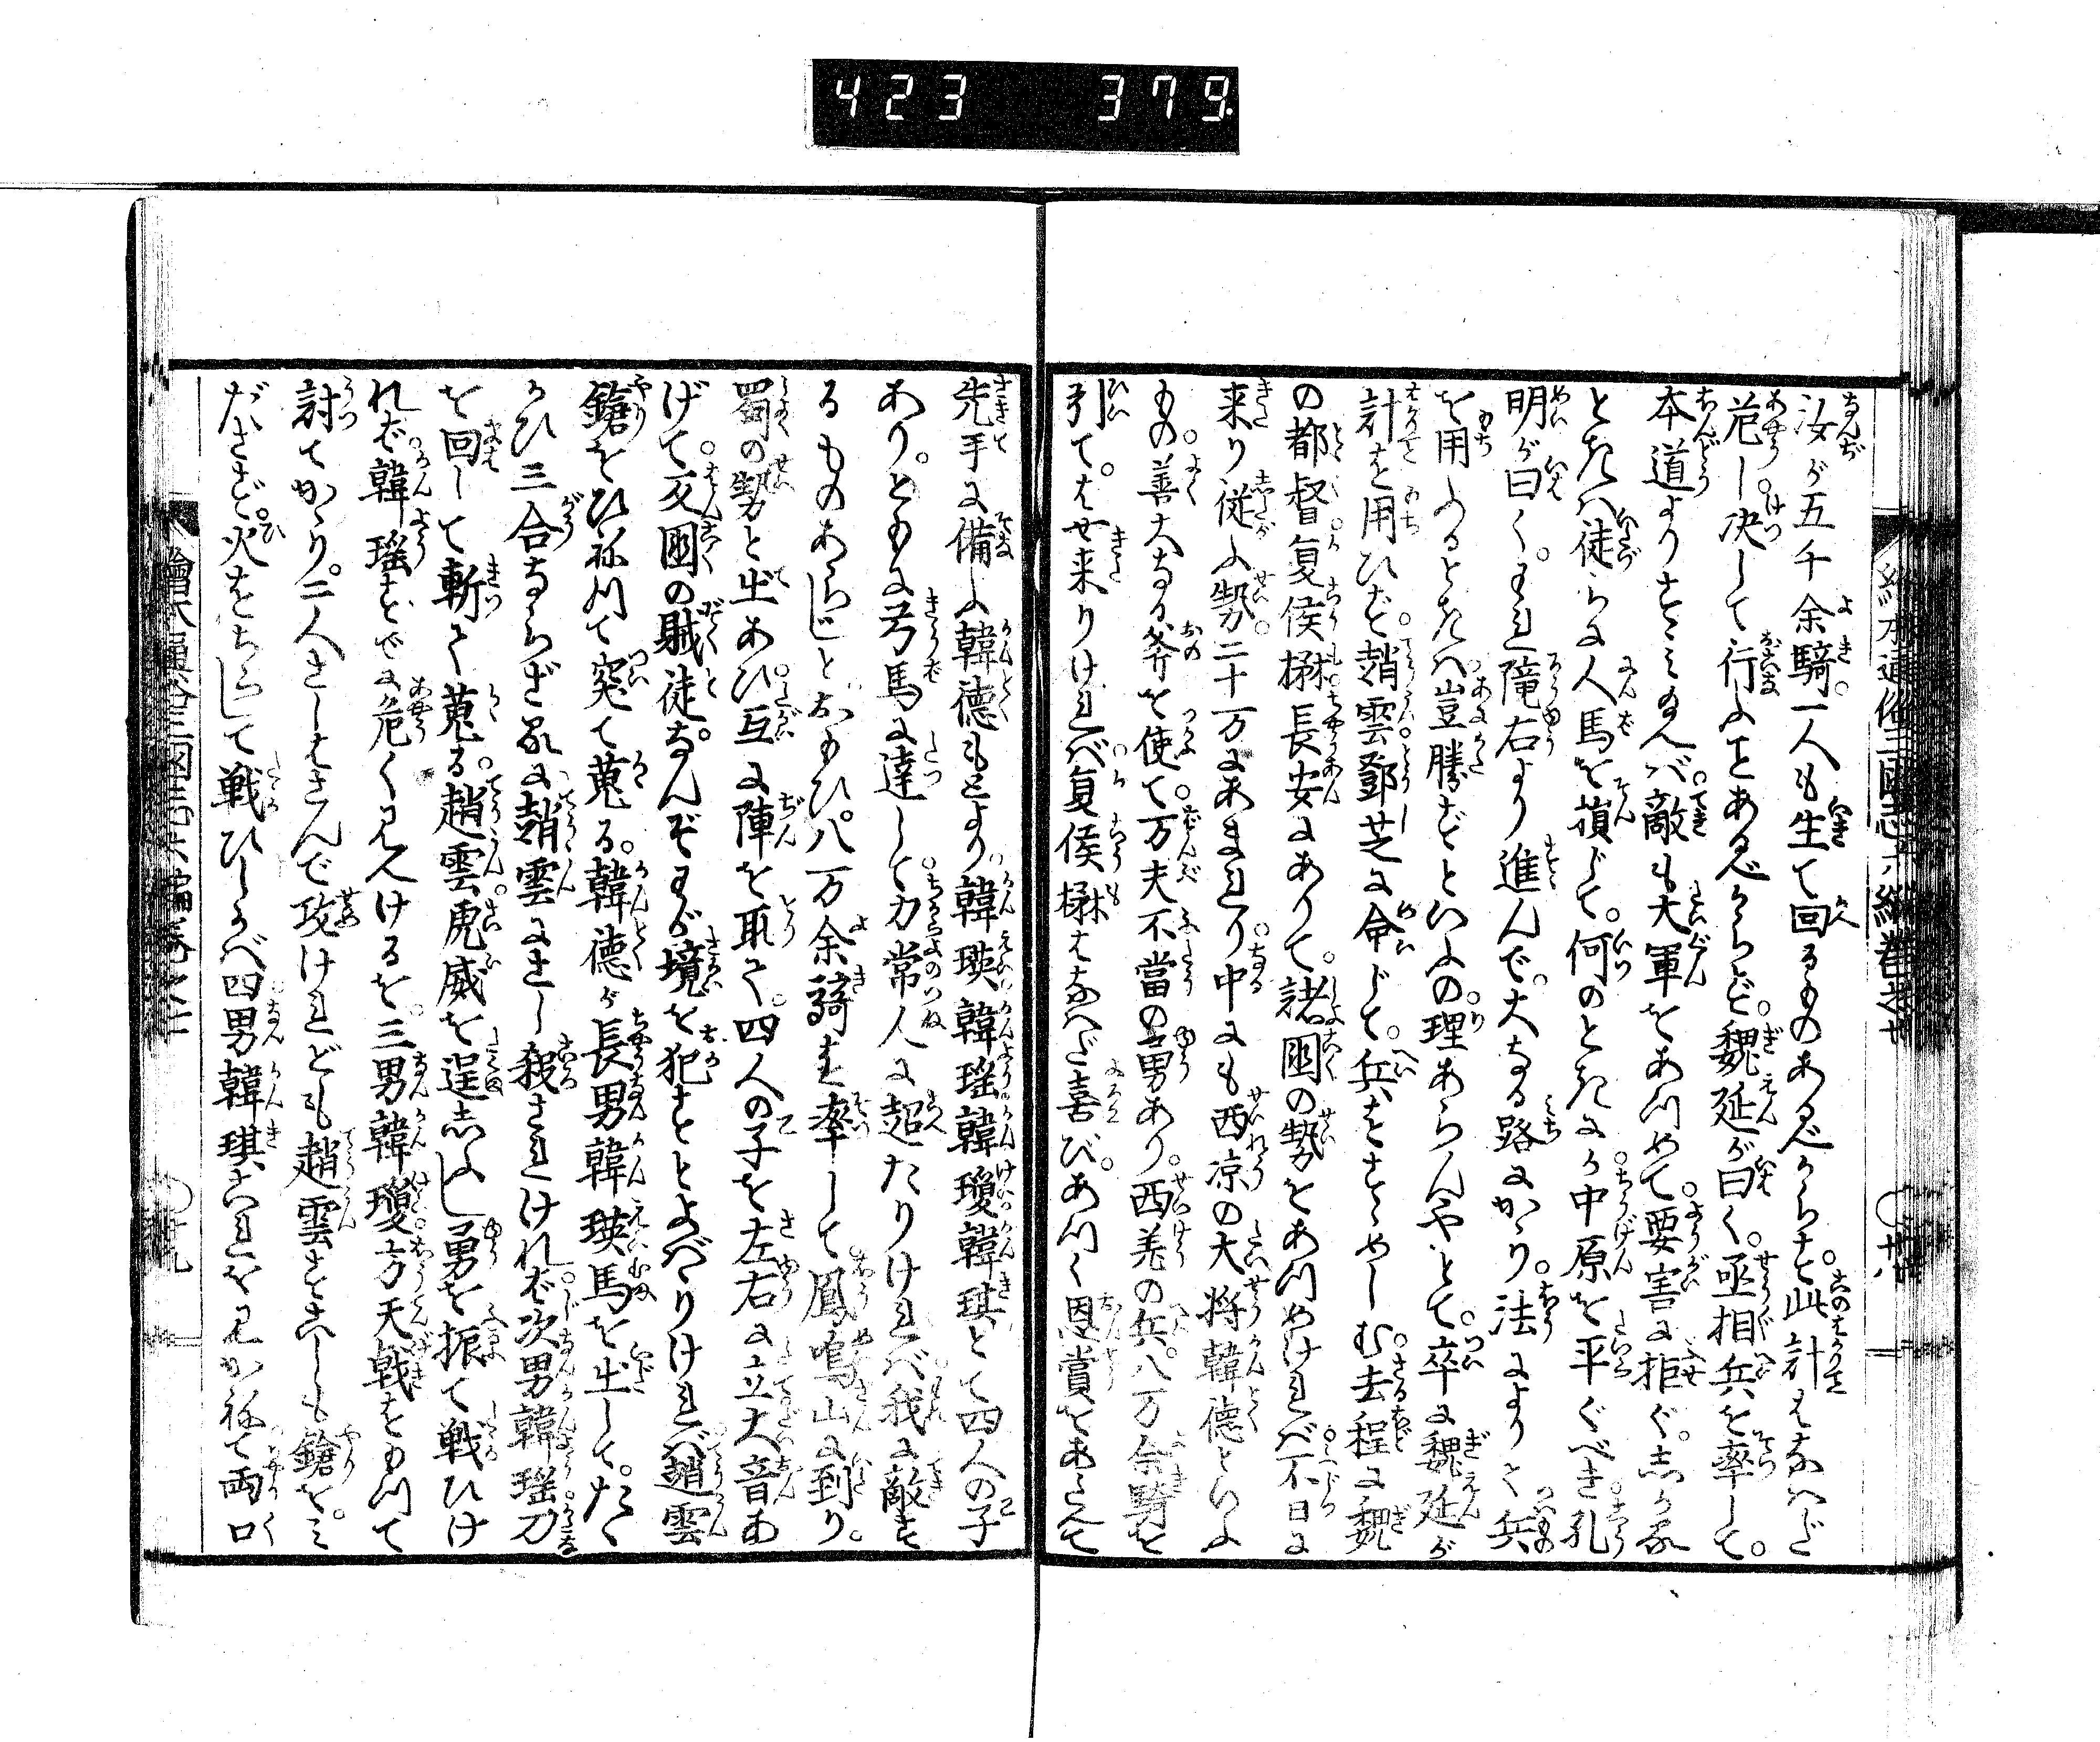 423 379
汝が五千余騎一人も生て回るものあるべからず。此計はなはだ
危し。决して行ふことあるべからず。魏延が曰く。丞相兵を率して。
本道よりすゝみ玉へば。敵も大軍をあつめて。要害に拒ぐ。しかる
ときは徒らに人馬を損じて。何のときにか中原を平ぐべき。孔
明が曰く。それ隴右より進んで。大なる路にかゝり。法によりて兵
を用ふるときは豈勝ずといふの理あらんやとて。卒に魏延が
計を用ひず。趙雲鄧芝に命じて。兵をすゝめしむ。去程に魏
の都督夏侯楙。長安にありて。諸国の勢をあつめければ。不日に
来り従ふ勢。二十万にあまれり。中にも西凉の大将韓德といふ
もの。善大なる斧を使て。万夫不當の勇あり。西羌の兵。八万余騎を
引て。はせ来りければ。夏侯楙はなはだ喜び。あつく恩賞をあたへて
先手に備ふ。韓德もとより。韓瑛韓瑤韓瓊韓琪とて四人の子
あり。ともに弓馬に達して。力常人に超たりければ。我に敵す
るものあらじとおもひ。八万余騎を率して。鳳鳴山に到り。
蜀の勢と出あひ。互に陣を取て。四人の子を左右に立大音あ
げて。反国の賊徒。なんぞわが境を犯すとよばりければ。趙雲
鎗をひねつて突て蒐る。韓德が長男韓瑛馬を出して。たゝ
かひ三合ならざるに。趙雲にさし殺されければ。次男韓瑤刀
を回して斬て蒐る。趙雲。虎威を逞しふし勇を振て戦ひけ
れば。韓瑤すでに危く見へけるを。三男韓瓊。方天戟をもつて
討てかゝり。二人さしはさんで攻けれども。趙雲すこしも鎗を。み
ださず。火をちらして戦ひしかば。四男韓琪これを見かねて両口